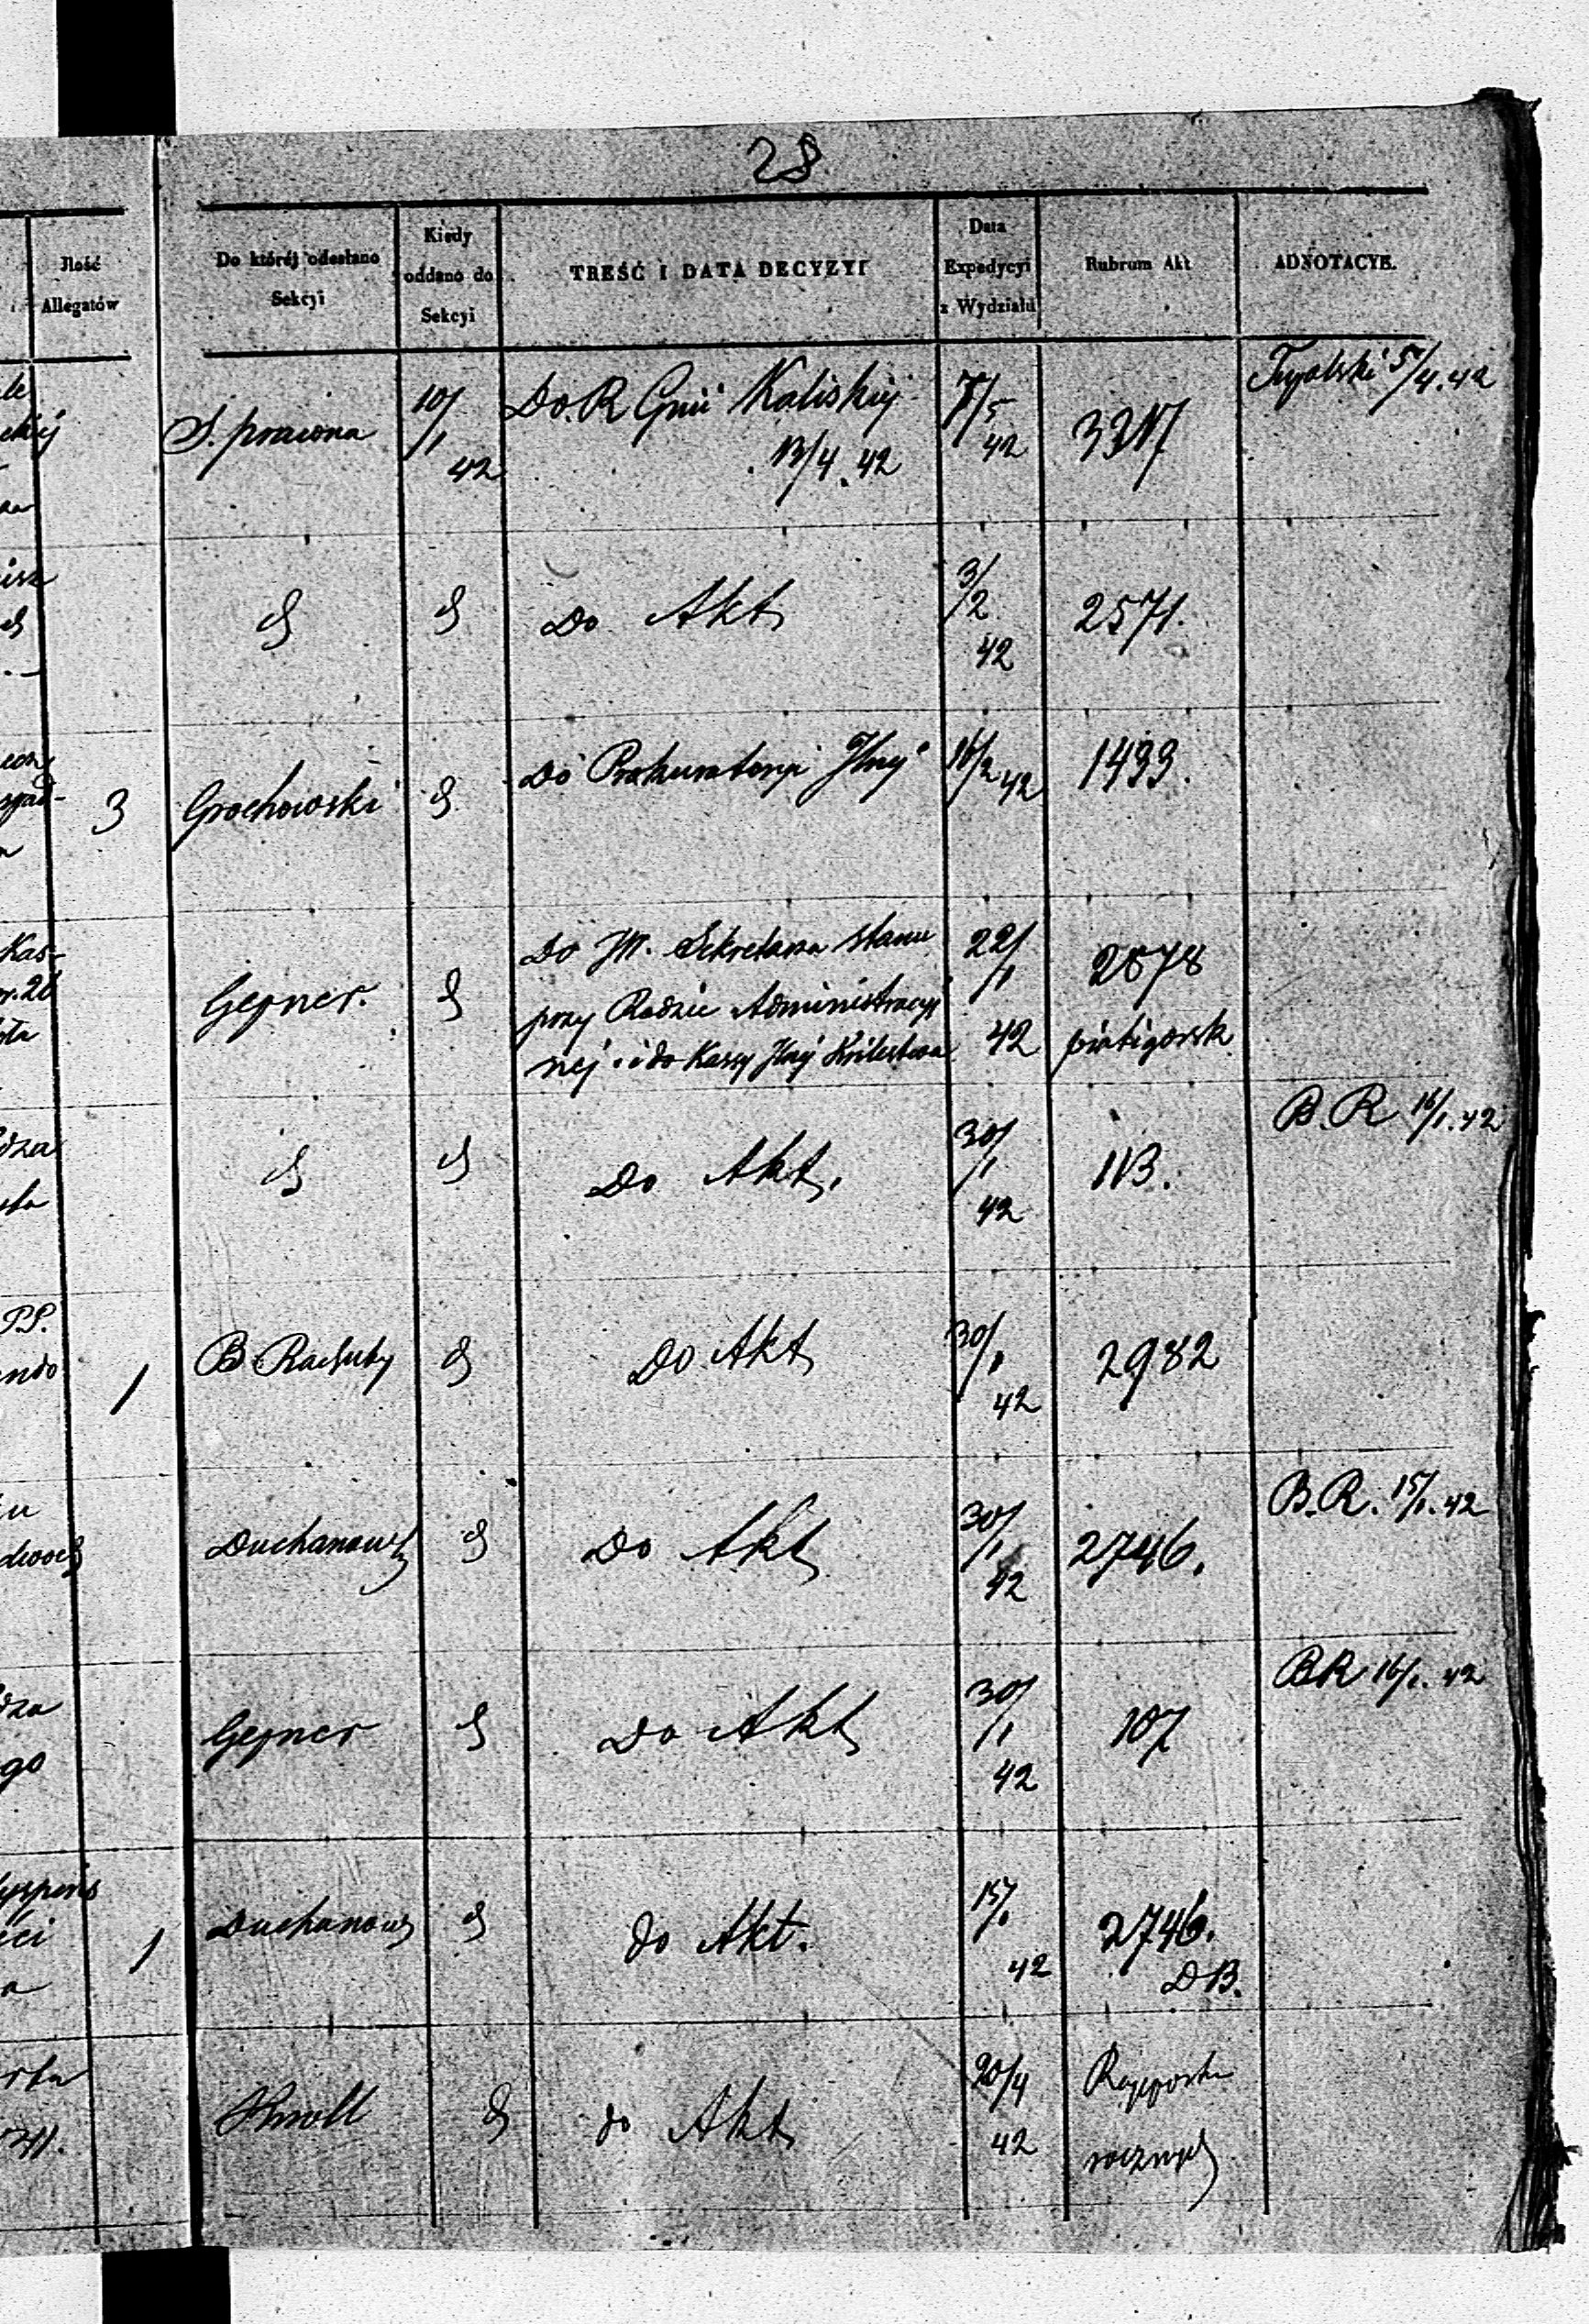 28
Jlość
Allegatów
Do któréj odesłano
Sekcyi
Kiedy
oddano do
Sekcyi
TREŚĆ I DATA DECYZYI
Data
Expedycyi
z Wydziału
Rubrum Akt
ADNOTACYE.
S. prawna
10/1 42
Do R Gnii Kaliskiej
13/4. 42
7/5 42
5/4. 42
Do Akt
3/2 42
2571.
3
Grochowski
Do Prokuratoryi
16/2 42
1433.
Kas-
Gejner.
Do JW. Sekretarza Stanu
przy Radzie Administracyj
nej i do Kassy Królestwa
22/1 42
2878
piatigorsk
dza
Do Akt.
30/1 42
113.
B. R 16/1. 42
PP.
1
B Rachuby
Do Akt
30/1 42
2982
Duchanows
Do Akt
30/1 42
2746.
B. R. 15/1. 42
dza
go
Gejner
Do Akt
30/1 42
107
BR 16/1. 42
ści
a
1
Duchanows
do Akt.
15/1 42
2746.
DB.
Knoll
do Akt
20/4 42
Rapporta